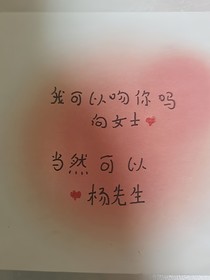 我可以吻你吗
向女士❤
当然可以
❤杨先生